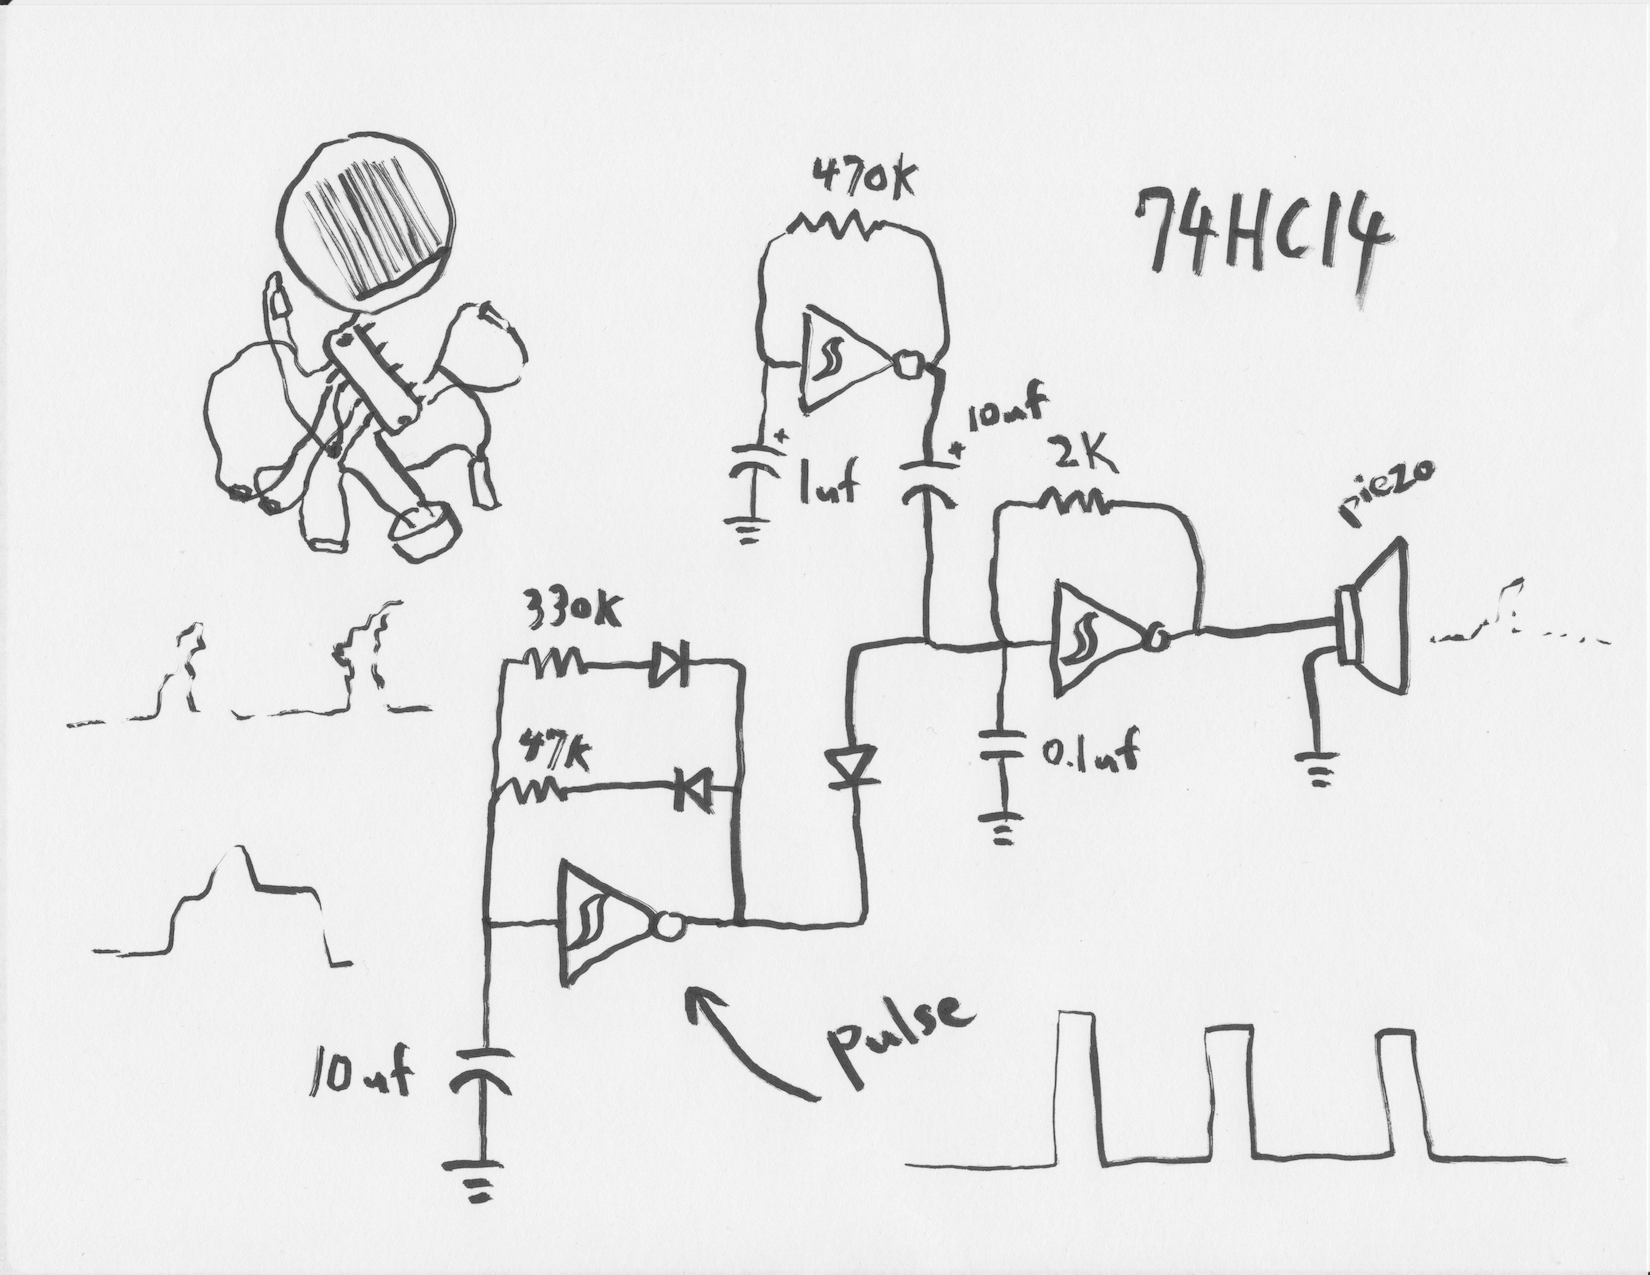 470K
74HC14
+
1uf
+
10uf
2K
piezo
330K
47K
0.1uf
10uf
pulse